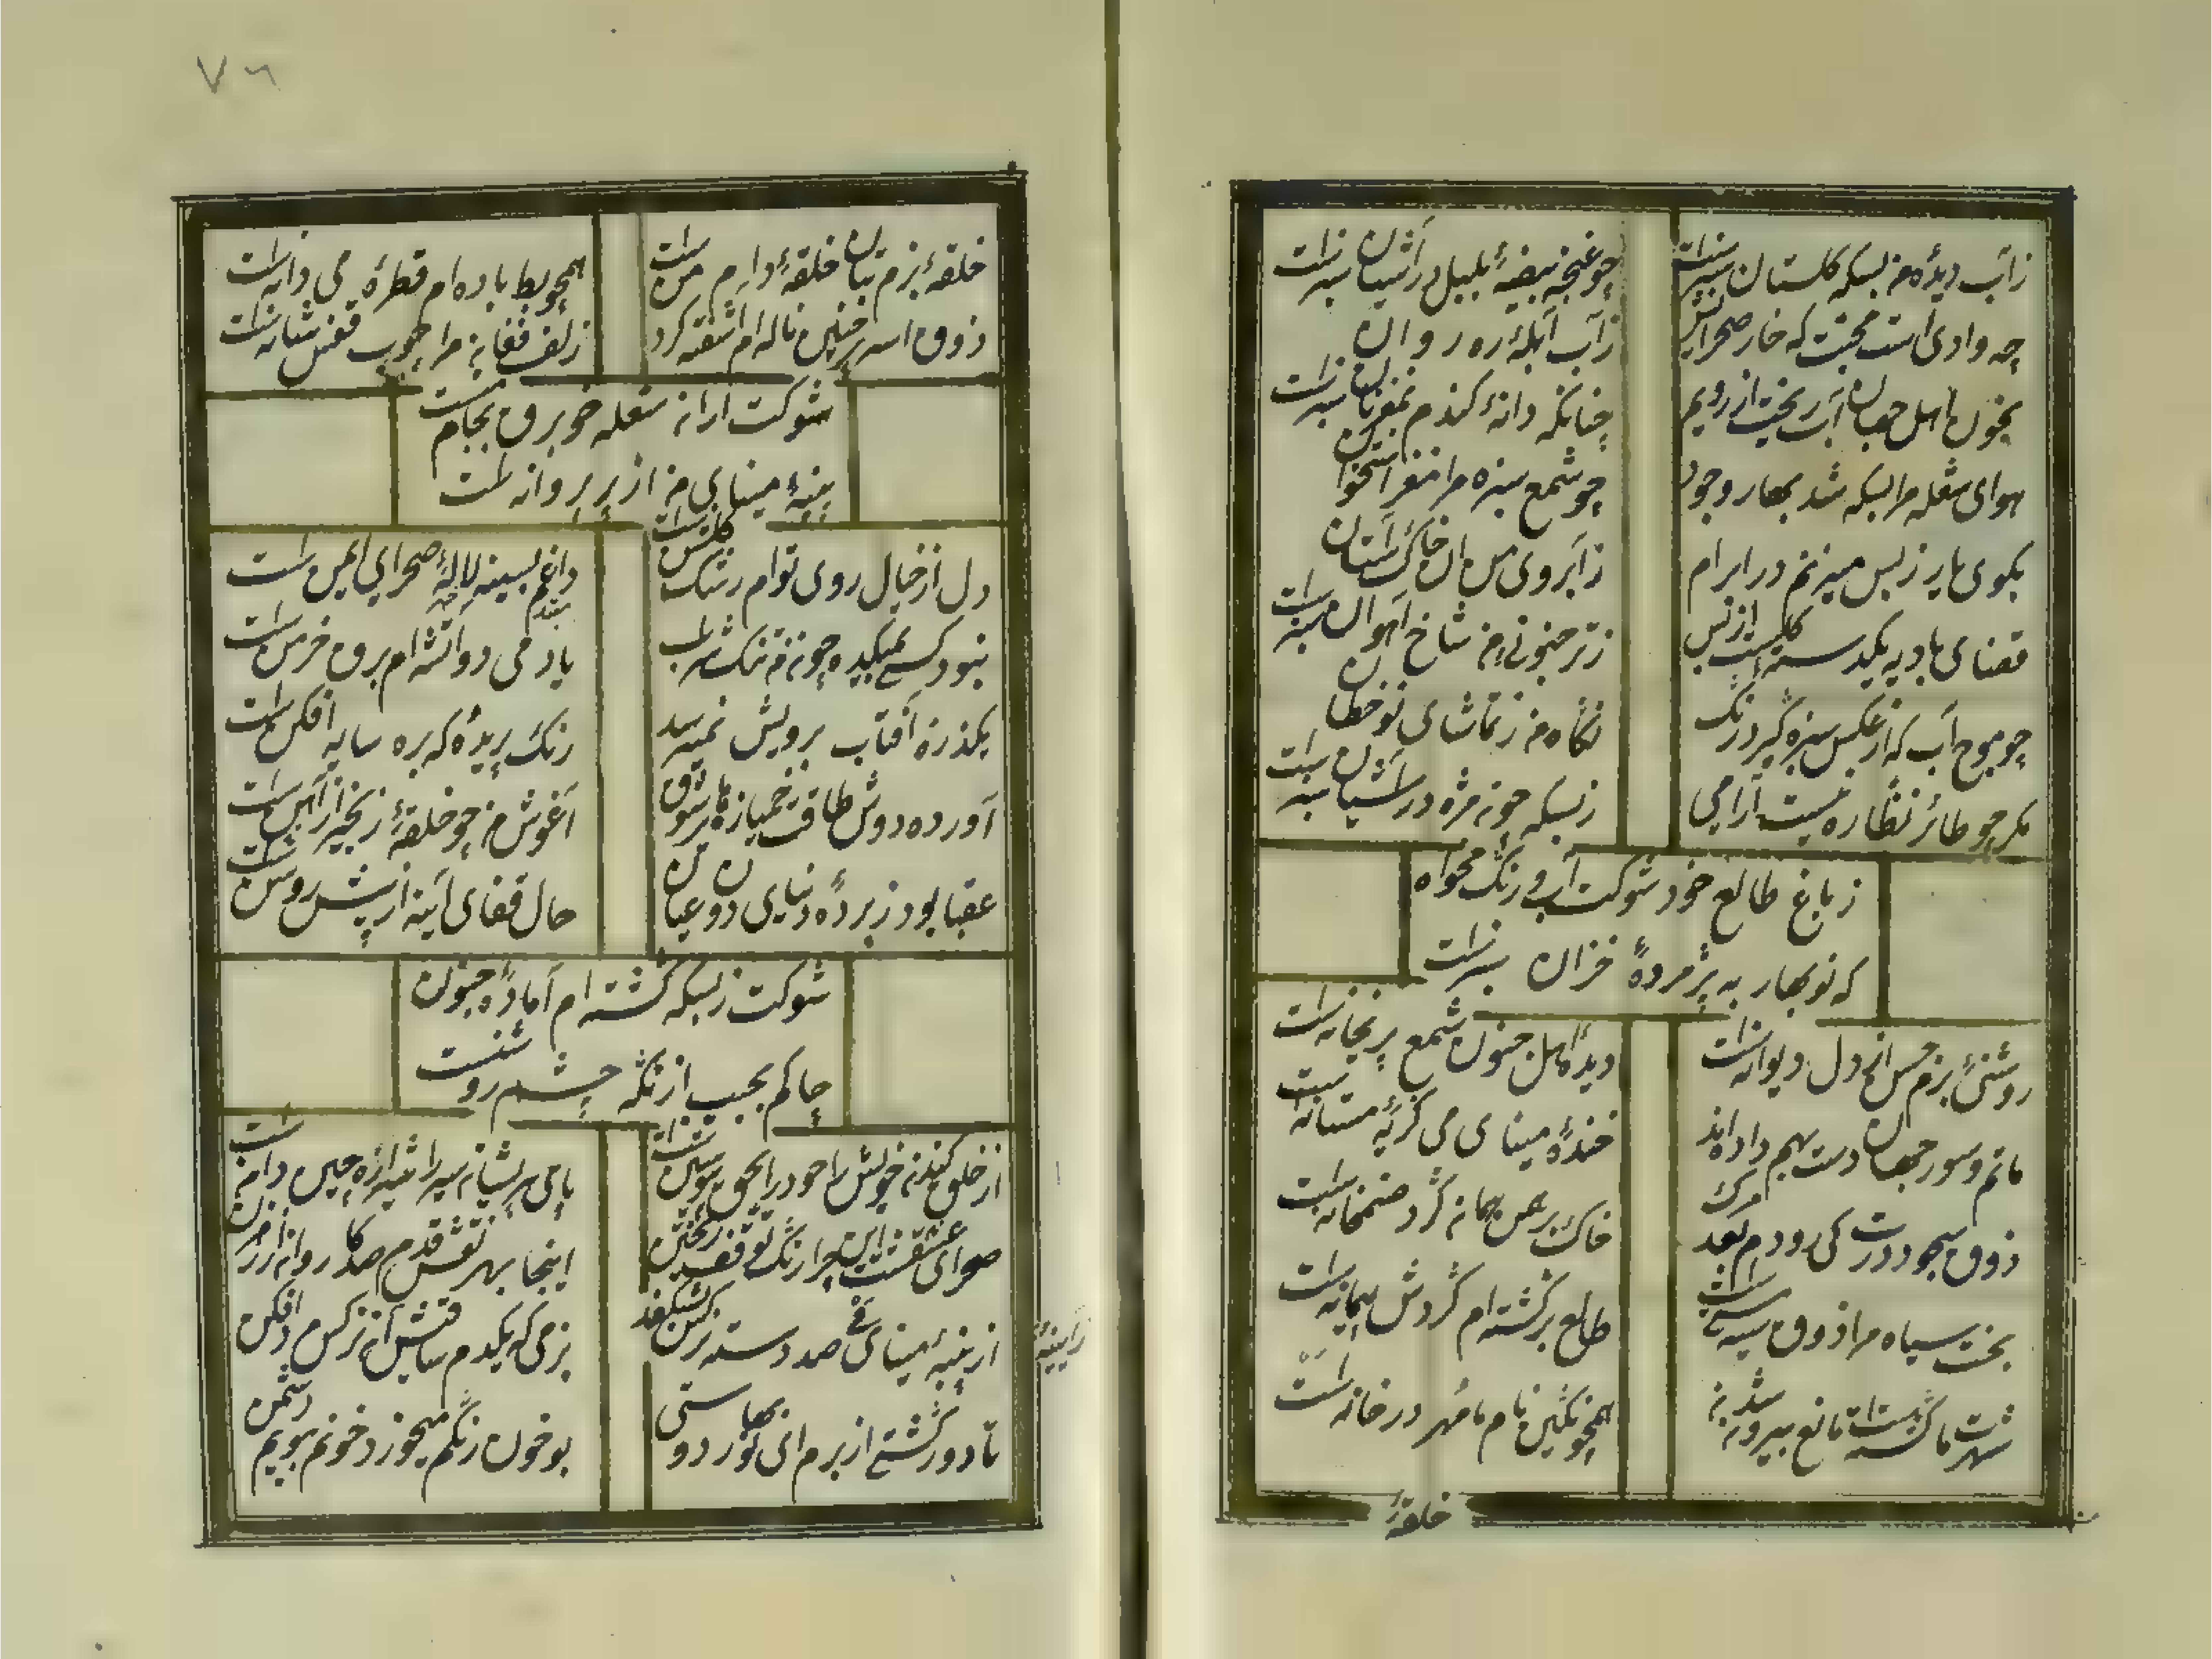 زآب دیدهٔ من بسکه گلستان سبزست
چو غنچه بیضهٔ بلبل در آشیان سبزست
چه وادی است محبت که خار صحرایش
زآب آبلهٔ ره روان
بخون اهل جهان آب ریخت از رویم
چنانکه دانهٔ گندم بمغز نان سبزست
هوای شعله مرا بسکه شد بهار وجود
چو شمع سبزه مرا مغز استخوان
بکوی یار ز بس میزنم در ابرام
زآبروی من آن خاک آستان
فضای بادیه یکدسته گلست از بس
ز تر جنونی من شاخ آهوان سبزست
چو موج آب که از عکس سبزه گیرد رنگ
نگاه من ز تماشای نوخطان
مگر چو طائر نظاره نیست آرامی
ز بسکه چون مژه در آشیان سبزست
ز باغ طالع خود شوکت آب و رنگ مخواه
که نوبهار به پژمردهٔ خزان سبزست
روشنیٔ بزم حسن از دل دیوانه است
دیدهٔ اهل جنون شمع پریخانه است
ماتم و سور جهان دست بهم داده اند
خندهٔ مینای می گریهٔ مستانه است
ذوق سجود درت کی رودم بعد مرگ
خاک برهمن همانه گرد صنمخانه است
بخت سیاه مرا ذوق سیه مستی است
طالع برگشته ام گردش پیمانه است
شهرت ما گشته است مانع بیرون شدن
همچو نگین نام ما مهر در خانه است
خلقهٔ
٧٦
خلقهٔ بزم بتان خلقهٔ دام من است
همچو بط باده ام قطرهٔ می دانه است
ذوق اسیری چنین ناله ام آشفته کرد
زلف فغان مرا چوب قفس شانه است
شوکت ازانه شعله خو برق بجام
پنبهٔ مینای من از پر پروانه است
دل از خیال روی توام رشک گلشن است
داغم بسینه لالهٔ صحرای ایمن است
نبود کسی بمیکده چون من تنک شراب
یاد می دوآتشه ام برق خرمن است
یکذره آفتاب برویش نمیرسد
رنگ پریدهٔ که بره سایه افکن است
آورده دوش طاقت خمیازه های شوق
آغوش من چو حلقهٔ زنجیر از آهن است
عقبا بود ز پردهٔ دنیای دون عیان
حال قفای آینه از پیش روشن است
شوکت ز بسکه گشته ام آمادهٔ جنون
چاکم بجیب از نگه چشم روشنست
از خلق کندن خویش را خود را بحق پیوستن است
پای پریشان سیر را شیرازه چین دامن است
صحرای عشقست این چرا رنگ توقف ریختن
اینجا بهر نقش قدم صد کاروان
از پنبهٔ مینای می صد دسته نرگس بشکفد
بزمی که یکدم ساقیش آن نرگس
زآینهٔ
تا دور گشتی از برم ای نوبهار دوستی
بو خون رنگم میخورد خونم ببویم دشمن